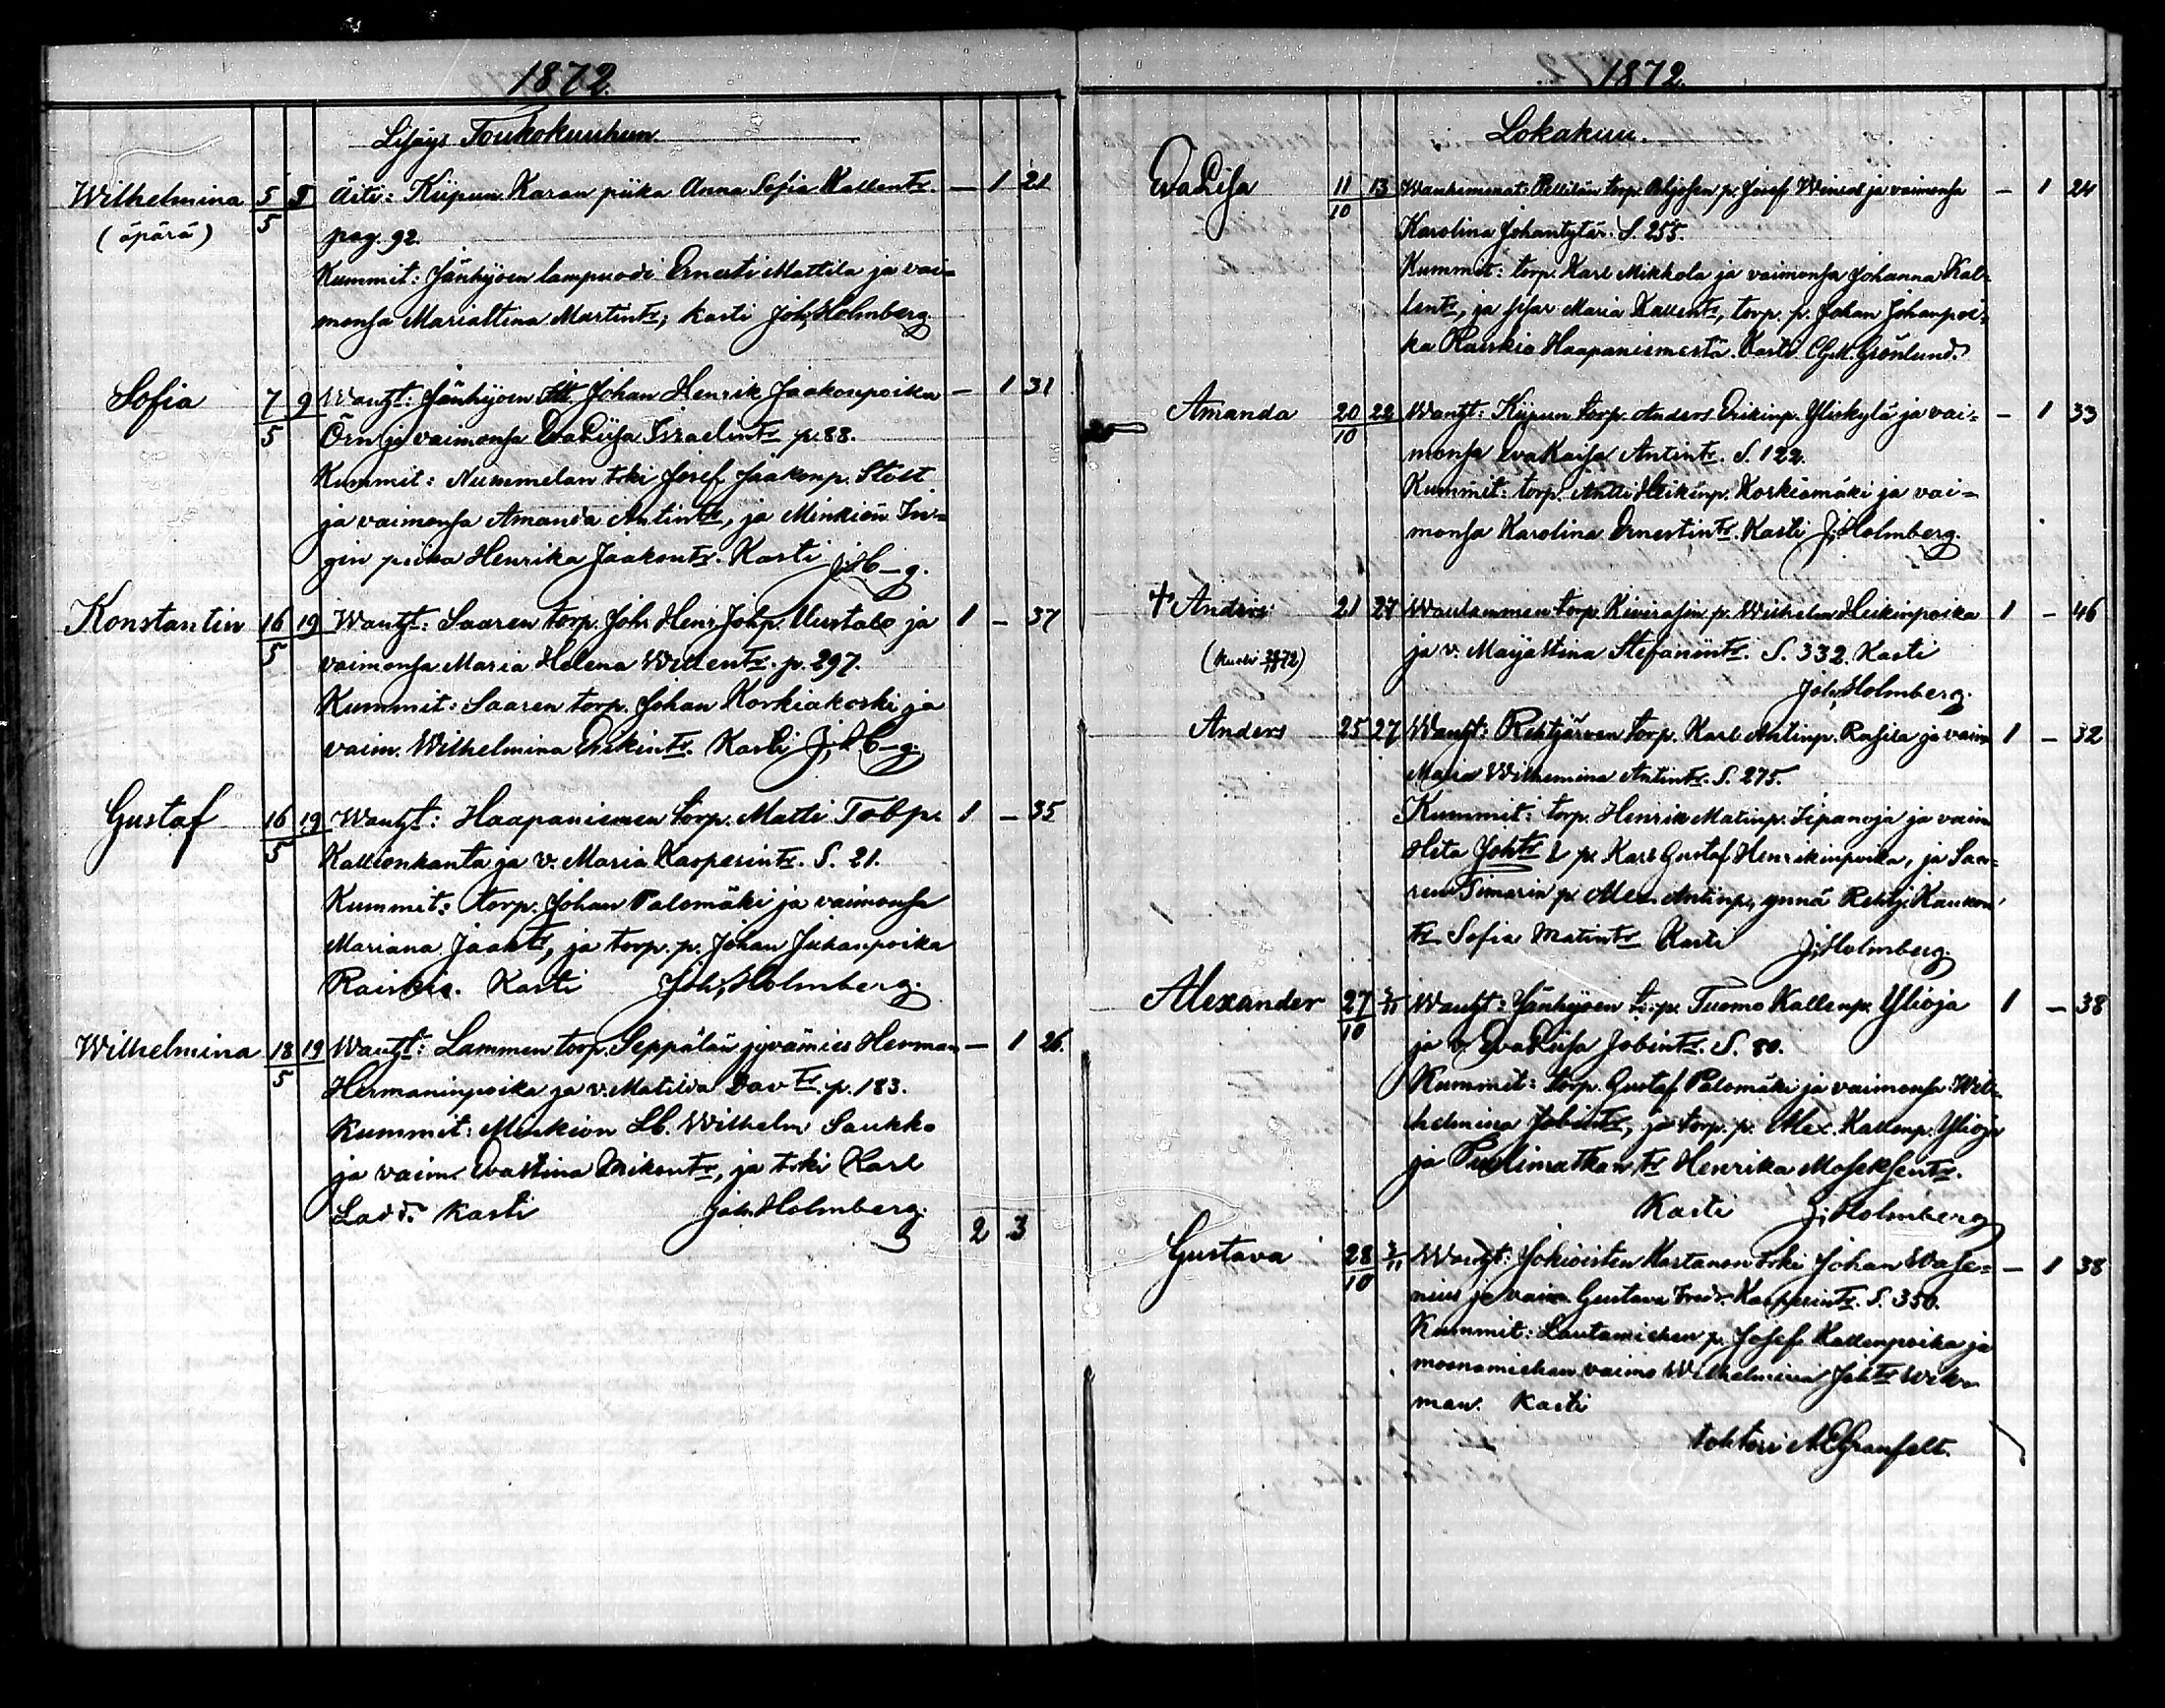 1872.
Lisäys Toukokuuhun.
Wilhelmina 5/5 5 Äiti: Kiipun Karan piika Anna Sofia Kallentr — 1 21
(äpärä) pag. 92.
Kummit: Jänhijoen lampuodi Ernesti Mattila ja vai=
monsa Mariastina Martintr; kasti Joh. Holmberg.
Sofia 7/5 9 Wanht: Jänhijoen Johan Henrik Jaakonpoika — 1 31
Örn ja vaimonsa EvaLiisa Israelintr p. 88.
Kummit: Nummelan trki Josef Jaakonp. Stolt
ja vaimonsa Amanda Antintr, ja Minkiön In=
gin piika Henrika Jaakontr. Kasti J.H–g.
Konstantin 16/5 19 Wanht: Saaren torp. Joh. Henr. Johp. Uustalo ja 1 — 37
vaimonsa Maria Helena Willentr. p. 297.
Kummit: Saaren torp. Johan Korkiakoski ja
vaim. Wilhelmina Erikintr. Kasti J.H–g.
Gustaf 16/5 19 Wanht: Haapaniemen torp. Matti Tobp. 1 — 35
Kallionkanta ja v. Maria Kasperintr. S. 21.
Kummit: torp. Johan Palomäki ja vaimonsa
Mariana Jaaktr, ja torp. p. Johan Juhanpoika
Raiskio. Kasti Joh. Holmberg.
Wilhelmina 18/5 19 Wanht: Lammen torp. Seppälän jyvämies Herman — 1 26.
Hermaninpoika ja v. Matilda Davtr. p. 183.
Kummit: Minkiön Lb. Wilhelm Saukko
ja vaim. Evastina Erikontr, ja trki Karl
Ladd. Kasti Joh. Holmberg.
2 3
1872.
Lokakuu.
EvaLisa 11/10 13 Wanhemmat: Pellilän torp. p. Josef ja vaimonsa — 1 24
Karolina Johantytär. S. 255.
Kummit: torp. Karl Mikkola ja vaimonsa Johanna Kal=
lentr, ja sisar Maria Kallentr, torp. p. Johan Johanpoi=
ka Raiskio Haapaniemestä. Kasti Grönlund.
Amanda 20/10 22 Wanht: Kiipun torp. Anders Erikinp. Yliskylä ja vai= — 1 33
monsa EvaKaisa Antintr. S. 122.
Kummit: torp. Antti Heikinp. Korkiamäki ja vai=
monsa Karolina Ernestintr. Kasti J. Holmberg.
+ Anders 21 27 torp. Kivirasin p. Wilhelm Heikinpoika 1 — 46
ja v. Maijastina Stefanintr. S. 332. Kasti
Joh. Holmberg.
Anders 25 27 Wanht: Rehtijärven torp. Karl Antinp. Rasila ja vaim. 1 — 32
Maria Wilhelmina Antintr. S. 275.
Kummit: torp. Henrik Matinp. Iipanoja ja vaim.
Heta Johtr p. Karl Gustaf Henrikinpoika, ja Saa=
ren p. Alex. Antinp, ynnä Rehtj.
tr Sofia Matintr Kasti J. Holmberg.
Alexander 27/10 3/11 Wanht: Jänhijoen torp. Tuomo Kallenp. Ylioja 1 — 38
ja v. EvaLiisa Jobintr. S. 80.
Kummit: torp. Gustaf Palomäki ja vaimonsa Wil=
helmina Jobintr, ja torp. p. Alex. Kallenp. Ylioja
ja tr Henrika
Kasti J. Holmberg
Gustava 28/10 3/11 Wanht: Jokioisten Kartanon trki Johan Wase= — 1 38
nius ja vaim. Gustava Fred. Kasperintr. S. 350.
Kummit: Lautamiehen p. Josef Kallenpoika ja
moonamiehen vaimo Wilhelmina Johtr Wik=
man. Kasti
tohtori A E Granfelt.